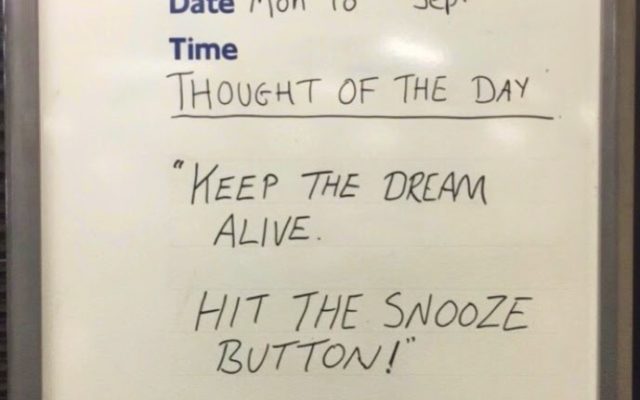 Date Mon 18 Sep.
Time
THOUGHT OF THE DAY
"KEEP THE DREAM
ALIVE.
HIT THE SNOOZE
BUTTON!"